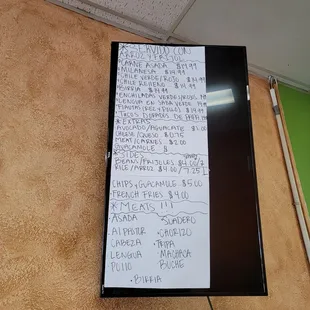 *SERVIDO CON
ARROZ Y FRIJOL
*CARNE ASADA $14.99
*MILANESA $14.99
*CHILE VERDE/ROJO $14.99
*CHILE RELLENO $14.99
*BIRRIA
*ENCHILADAS VERDE/ROJAS
*LENGUA EN SALSA VERDE
*FLAUTAS
*TACOS DORADOS DE
*EXTRAS
AVOCADO/AGUACATE $1.00
CHEESE/QUESO $0.75
MEAT/CARNES $2.00
GUACAMOLE
*SIDES
BEANS/FRIJOLES $4.00/
RICE/ARROZ $4.00/7.25
CHIPS Y GUACAMOLE $5.00
FRENCH FRIES $4.00
*MEATS!!!
ASADA •SUADERO
AL PASTOR •CHORIZO
CABEZA •TRIPA
LENGUA •MACHACA
POLLO BUCHE
•BIRRIA